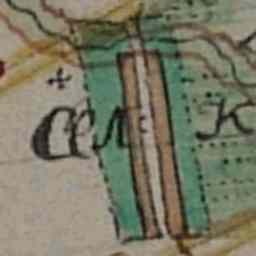 Сел: К